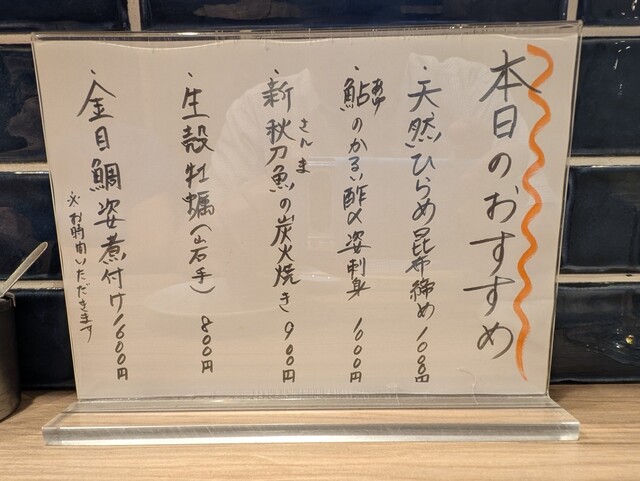 本日のおすすめ
・天然ひらめ昆布締め 1000円
・鮎のかるい酢〆姿刺身 1000円
あゆ
・新秋刀魚の炭火焼き 900円
さんま
・生殻牡蠣(岩手) 800円
・金目鯛姿煮付け 1600円
※お時間いただきます